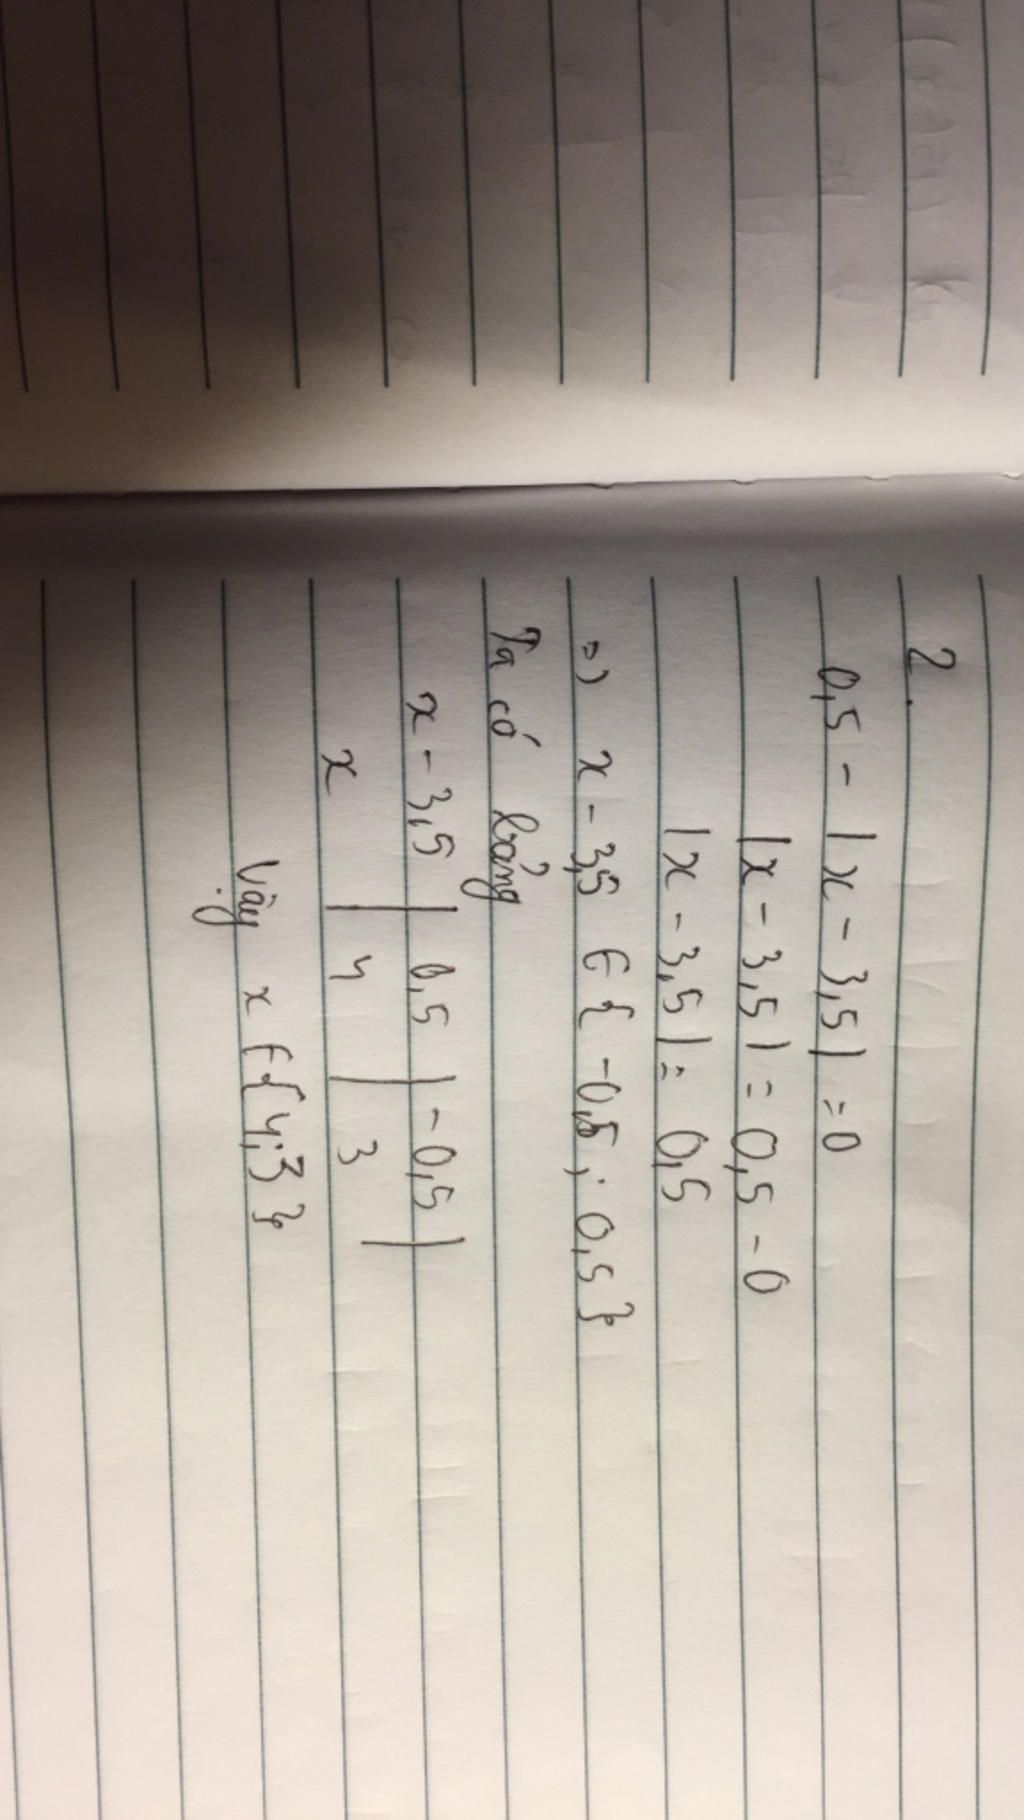 2.
0,5 - |x - 3,5| = 0
|x - 3,5| = 0,5 - 0
|x - 3,5| = 0,5
=> x - 3,5 ∈ { -0,5 ; 0,5 }
Ta có bảng
x - 3,5 | 0,5 | -0,5 |
x | 4 | 3
Vậy x ∈ { 4; 3 }